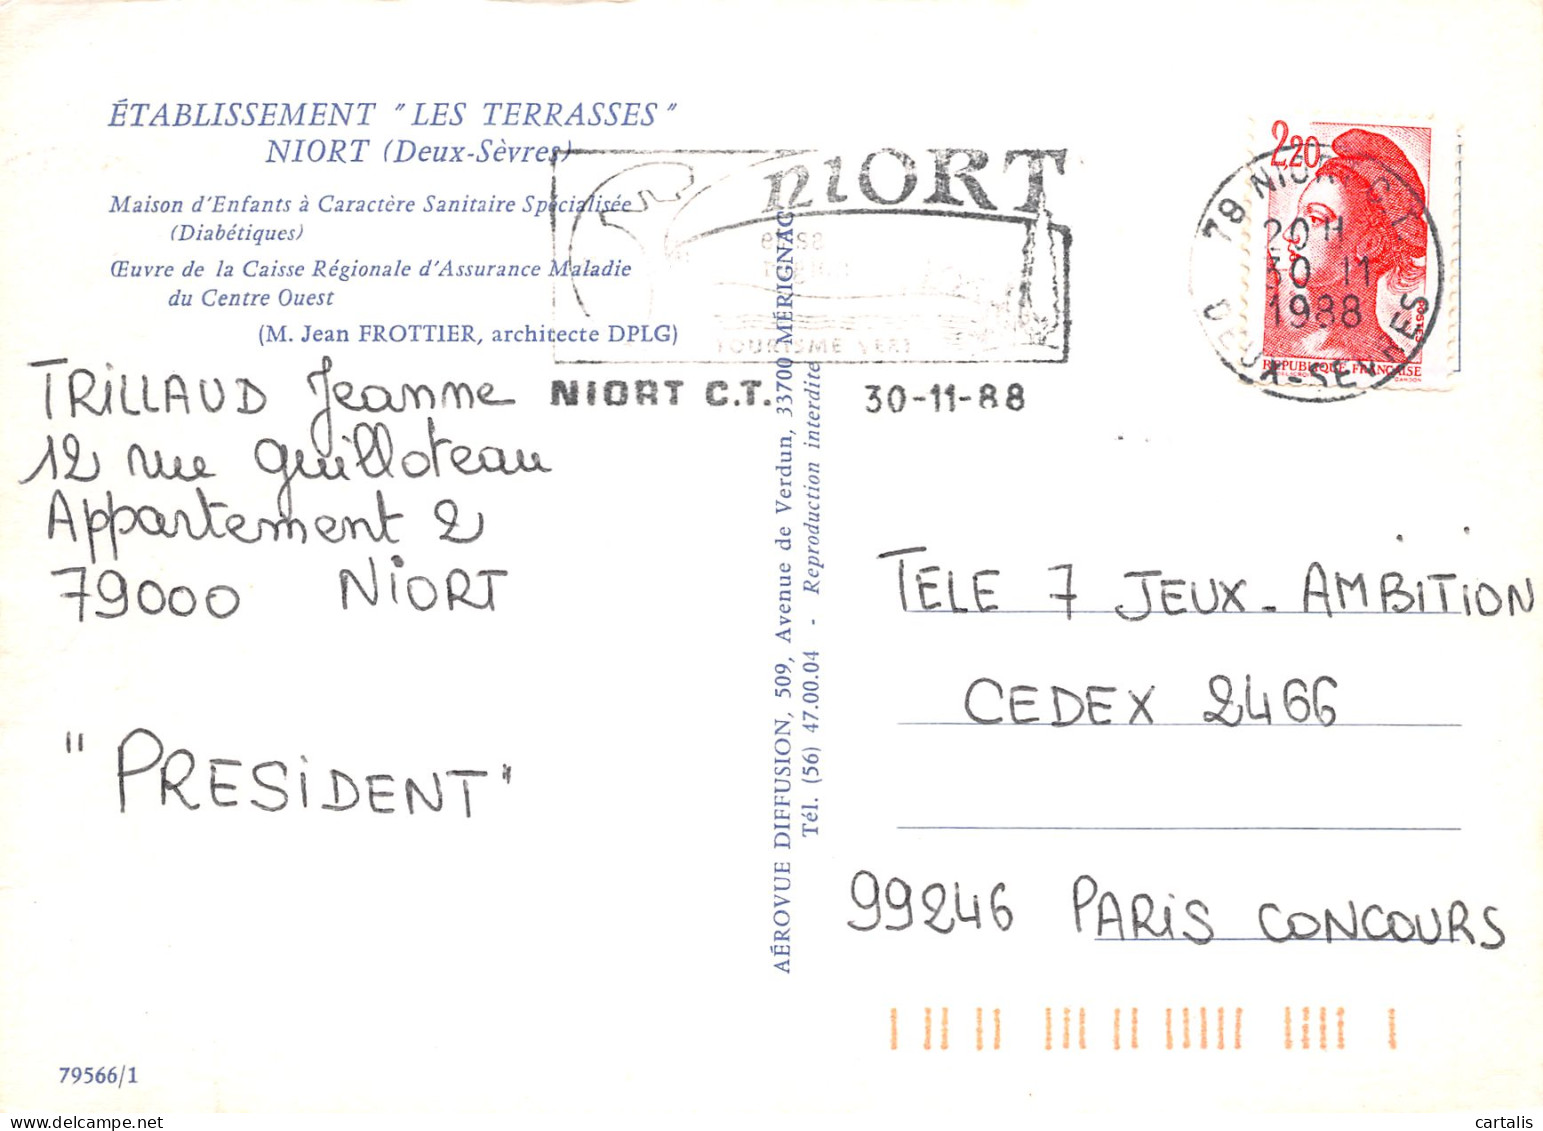 ÉTABLISSEMENT "LES TERRASSES"
NIORT (Deux-Sèvres)
Maison d'Enfants à Caractère Sanitaire Spécialisée
(Diabétiques)
Œuvre de la Caisse Régionale d'Assurance Maladie
du Centre Ouest
(M. Jean FROTTIER, architecte DPLG)
TRILLAUD Jeanne
12 rue Guilloteau
Appartement 2
79000 NIORT
"PRESIDENT"
79566/1
NIORT
TOURISME VERT
NIORT C.T. 30-11-88
AÉROVUE DIFFUSION, 509, Avenue de Verdun, 33700 MÉRIGNAC
Tél. (56) 47.00.04 - Reproduction interdite
2,20
POSTES
RÉPUBLIQUE FRANÇAISE
GANDON
79 NIORT C.T.
20 H
30 11
1988
DEUX-SEVRES
TELE 7 JEUX - AMBITION
CEDEX 2466
99246 PARIS CONCOURS
cartalis